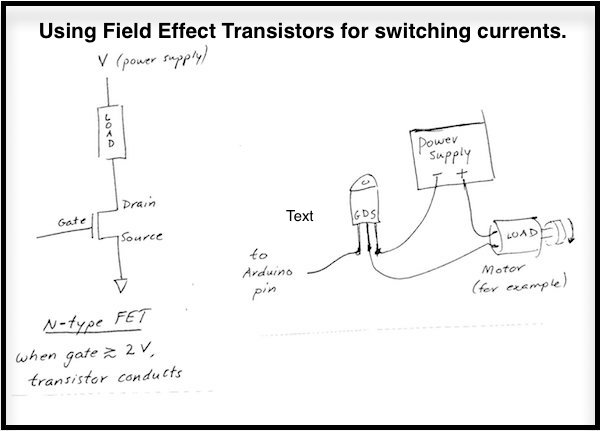 Using Field Effect Transistors for switching currents.
V (power supply)
LOAD
Drain
Gate
Source
N-type FET
when gate ≳ 2V,
transistor conducts
Text
Power
Supply
- +
GDS
LOAD
to
Arduino
pin
Motor
(for example)